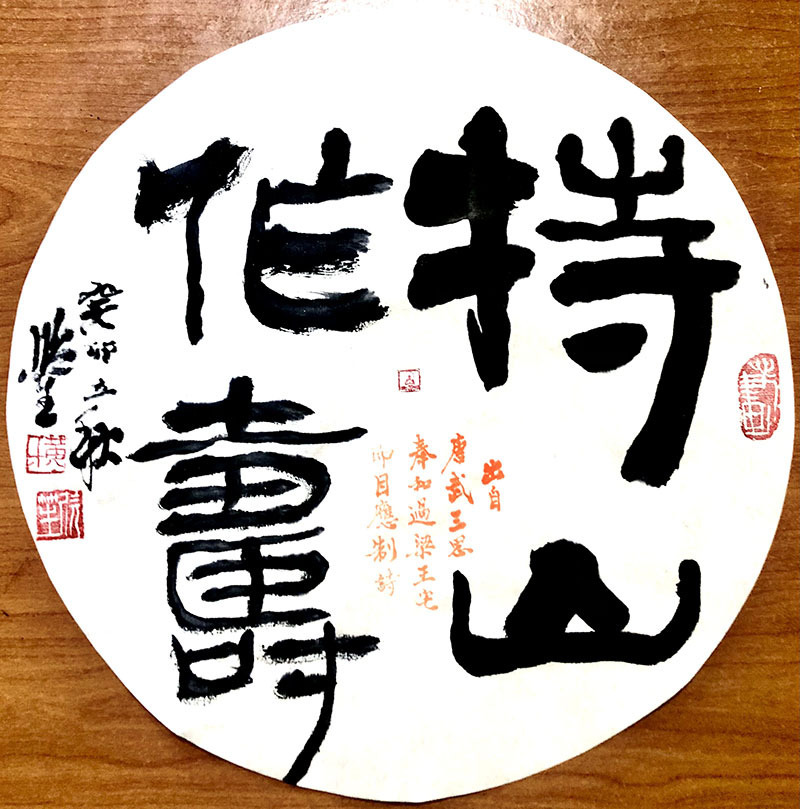 持山
作壽
出自
唐武三思
奉和過梁王宅
即目應制詩
癸卯立秋